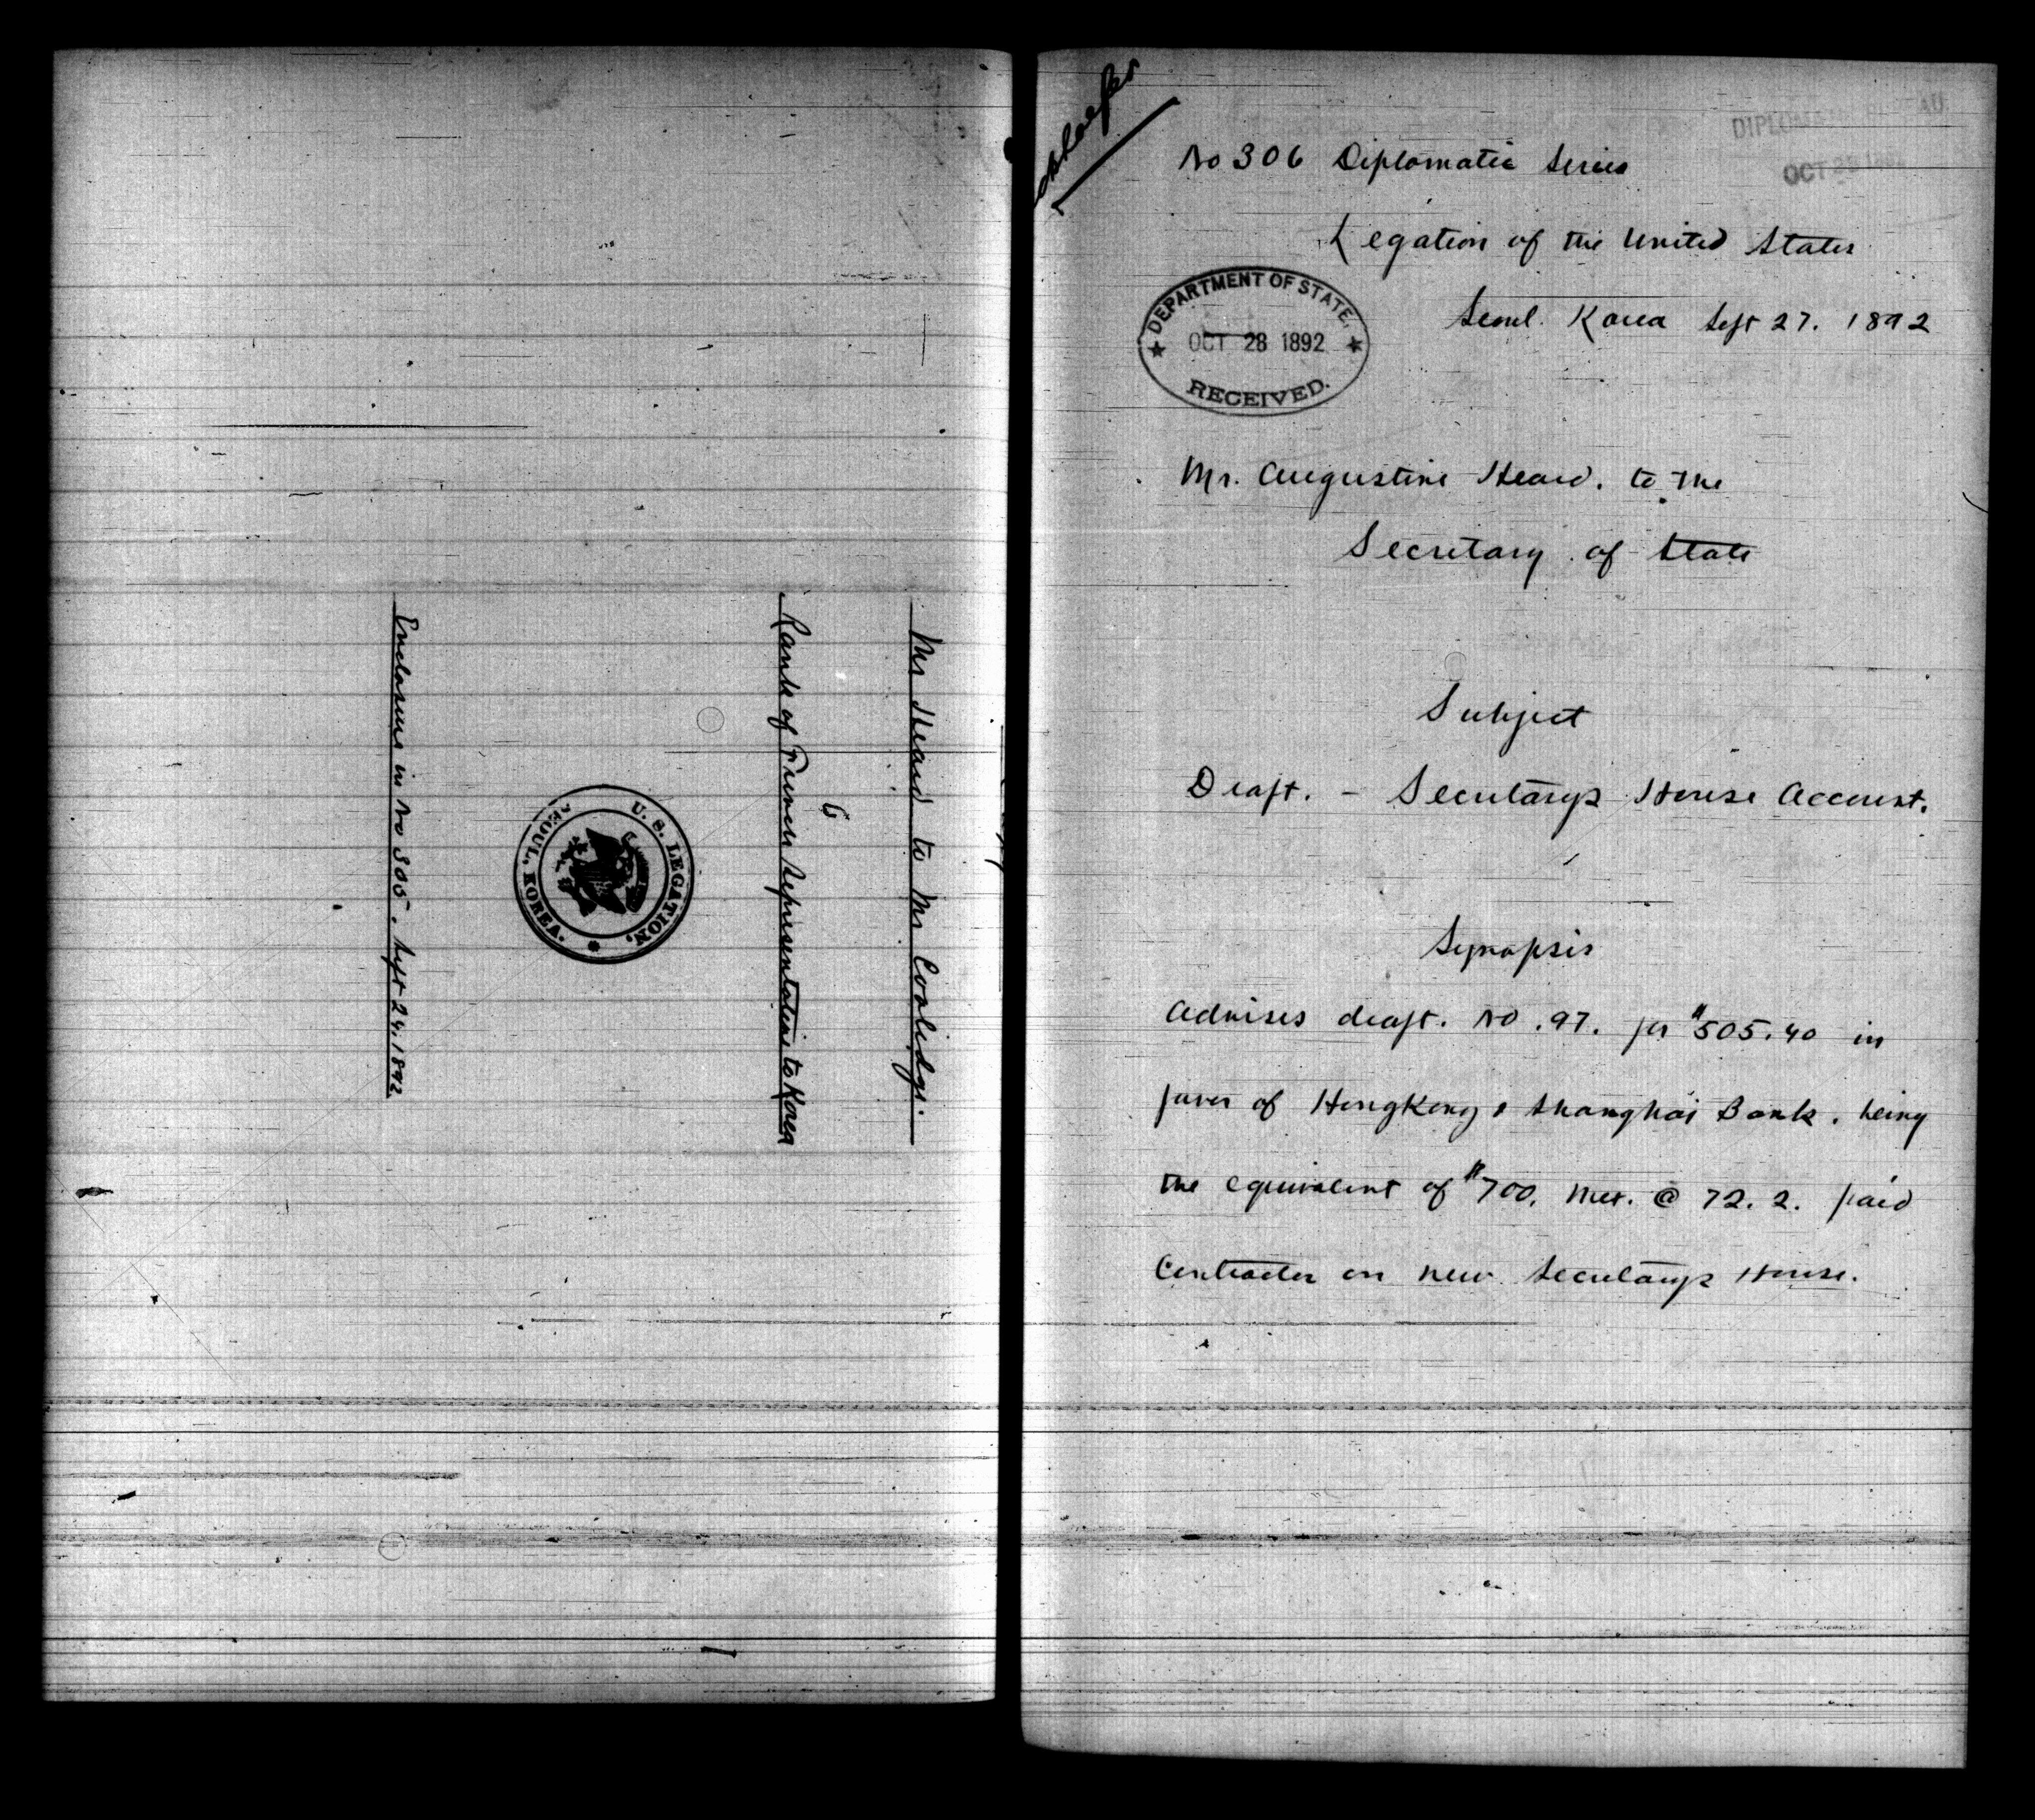 Mr Heard to Mr Coolidge.
6
Rank of French Representative to Korea
U. S. LEGATION,
SEOUL, KOREA.
Enclosure in No 305. Sept 24. 1892
No 306 Diplomatic Series
DIPLOMATIC
OCT 28 1892
Legation of the United States
Seoul. Korea Sept 27. 1892
DEPARTMENT OF STATE,
OCT 28 1892
RECEIVED.
Mr. Augustine Heard. to the
Secretary of State
Subject
Draft. - Secretarys House Account.
Synopsis
Advises draft. No. 97. for $505.40 in
favor of HongKong & Shanghai Bank. being
the equivalent of $700. Mex. @ 72.2. paid
Contractor on new Secretarys House.